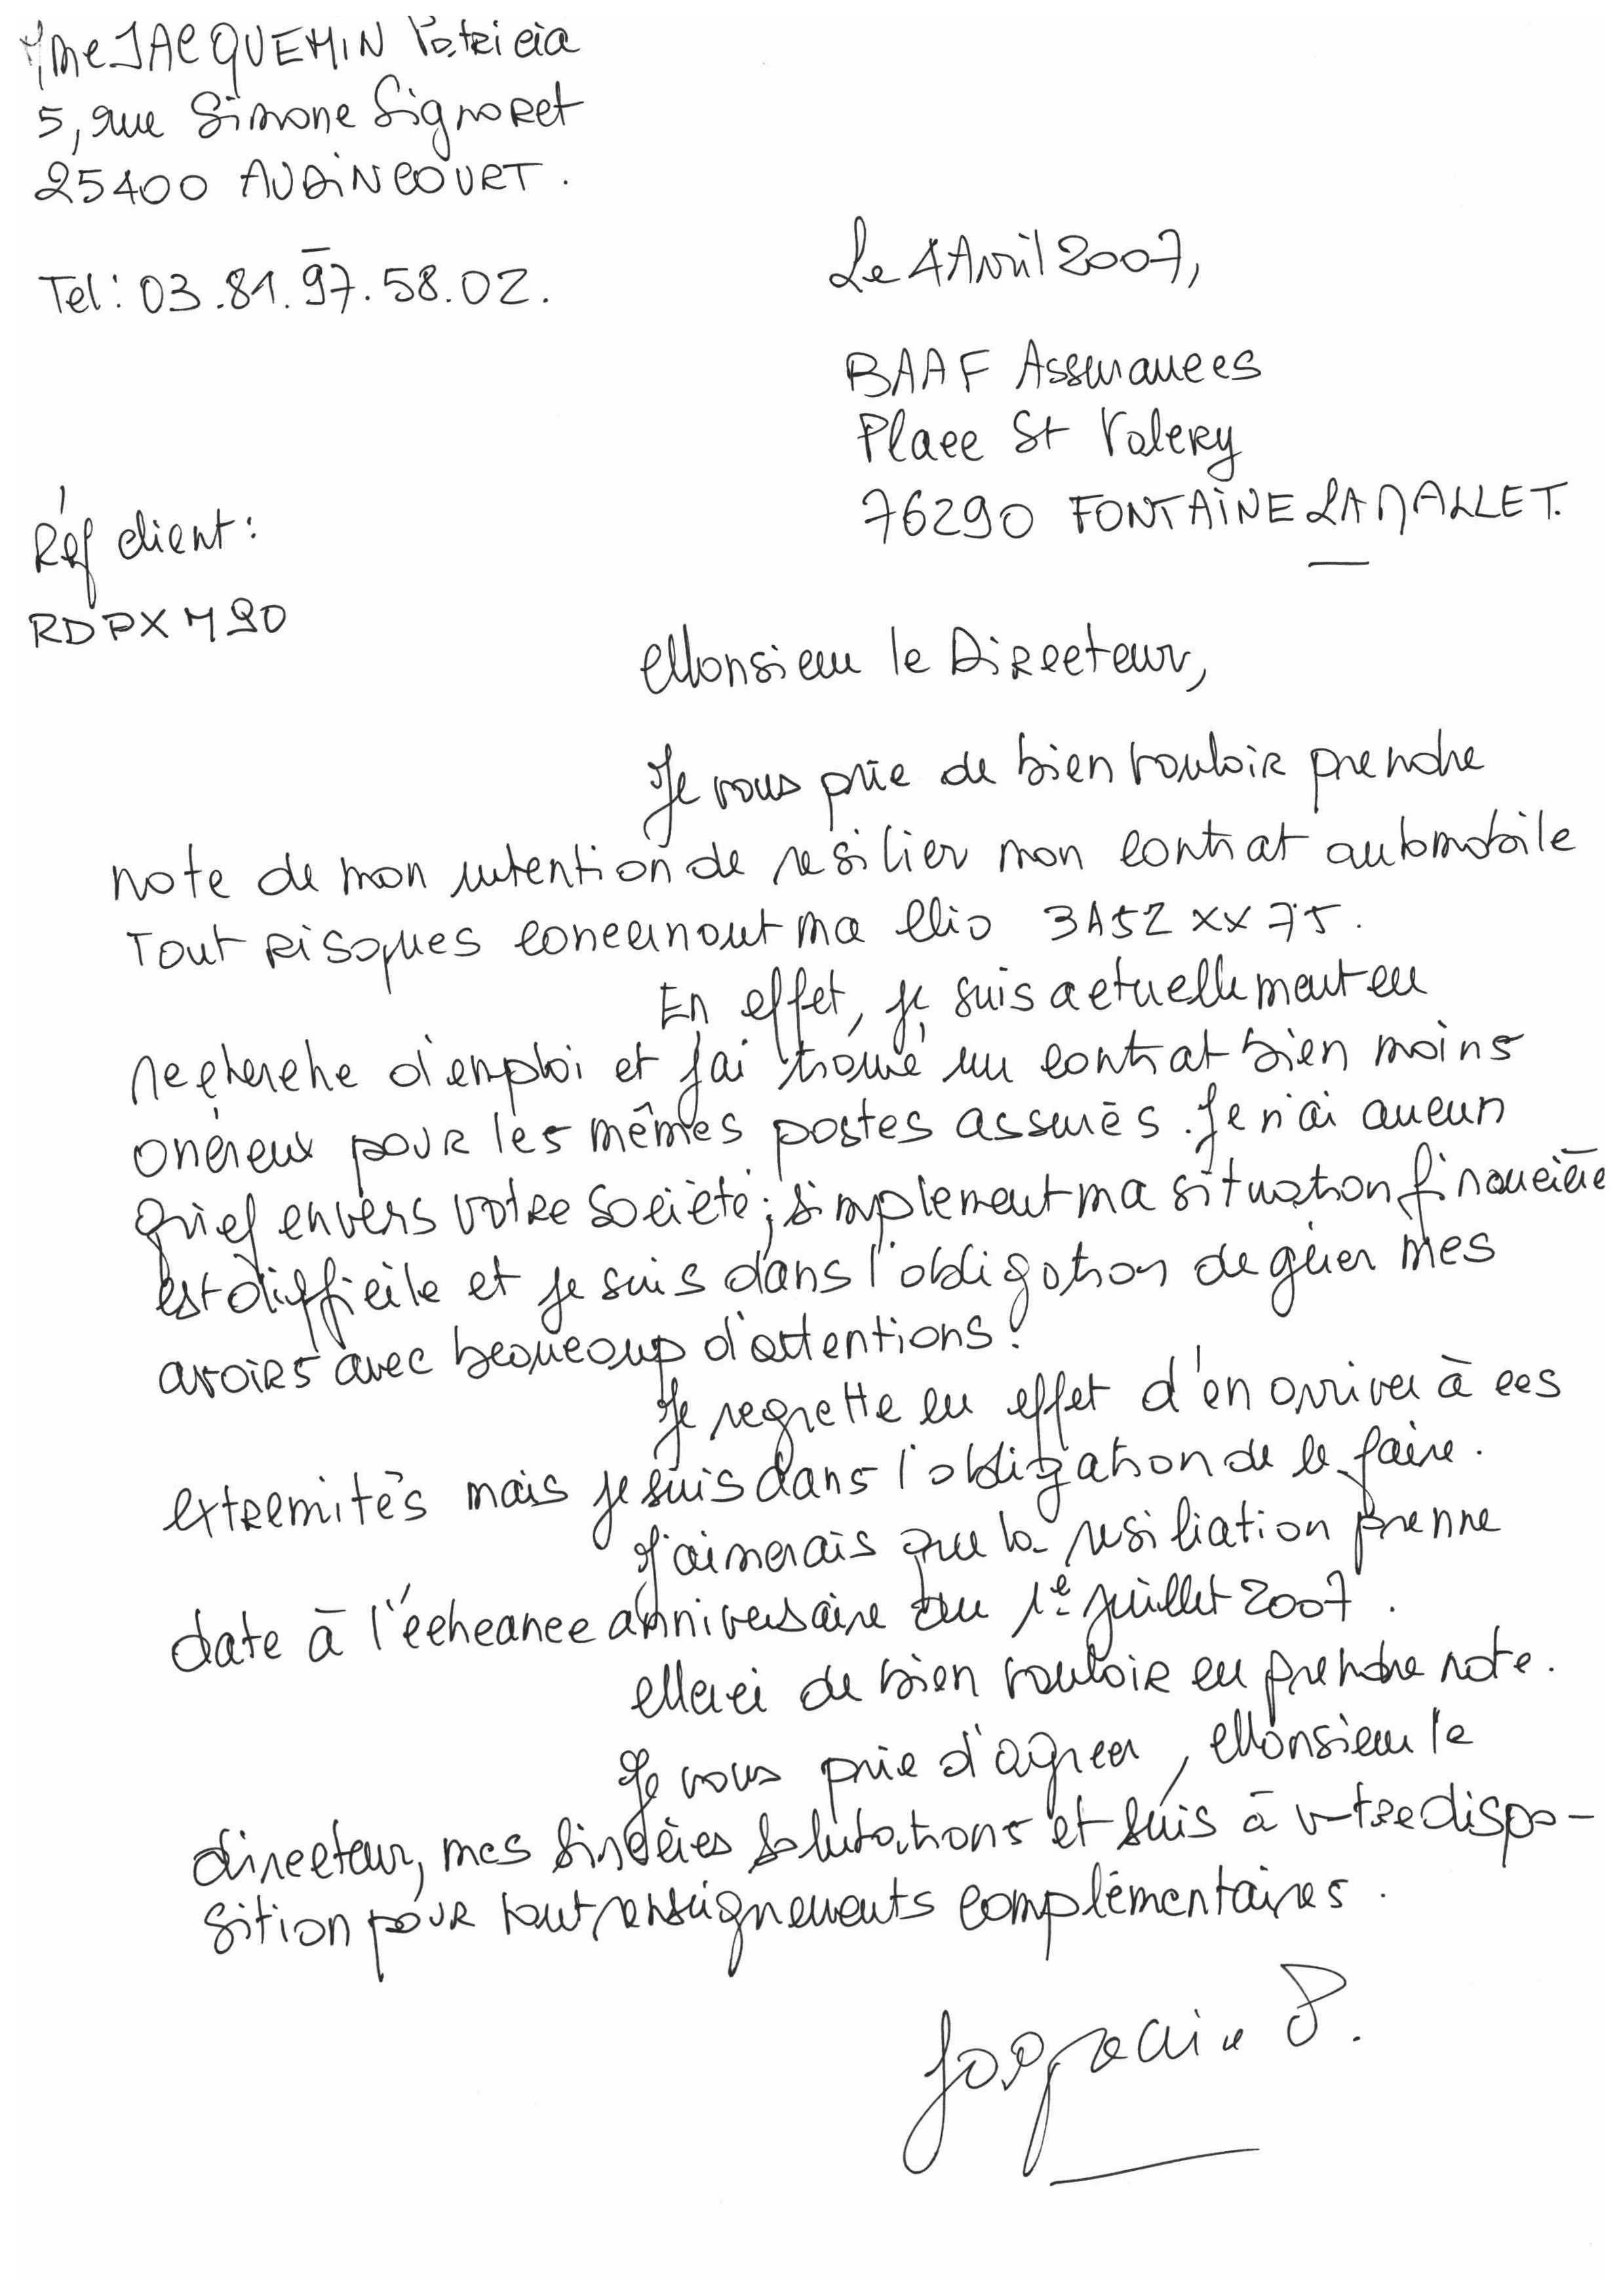 Mme JACQUEMIN Patricia
5, rue Simone Signoret
25400 AUDINCOURT.
Tel: 03.81.97.58.02.
Le 4 Avril 2007,
BAAF Assurances
Place St Valery
76290 FONTAINE LA MALLET.
Réf client:
RDPXM90
Monsieur le Directeur,
Je vous prie de bien vouloir prendre
note de mon intention de resilier mon contrat automobile
Tout Risques concernant ma Clio 3152 XX 75.
En effet, je suis actuellement en
recherche d'emploi et j'ai trouvé un contrat bien moins
onéreux pour les mêmes postes assurés. Je n'ai aucun
grief envers votre société; simplement ma situation financière
est difficile et je suis dans l'obligation de gérer mes
avoirs avec beaucoup d'attentions.
Je regrette en effet d'en arriver à ces
extremités mais je suis dans l'obligation de le faire.
J'aimerais que la resiliation prenne
date à l'échéance anniversaire du 1e juillet 2007.
Merci de bien vouloir en prendre note.
Je vous prie d'agréer, Monsieur le
directeur, mes sincères salutations et suis à votre dispo-
sition pour tout renseignements complémentaires.
Jacquemin P.